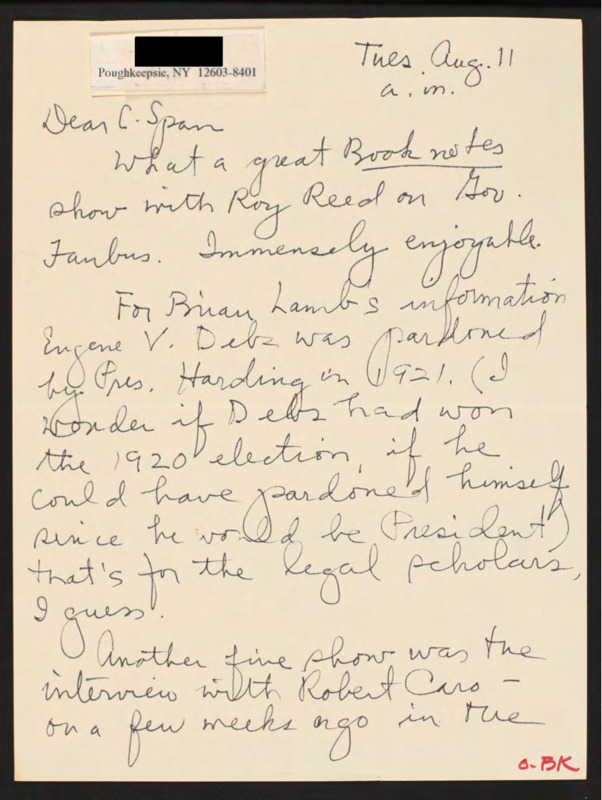 Poughkeepsie, NY 12603-8401
Tues. Aug. 11
a.m.
Dear C-Span
What a great Book notes
show with Roy Reed on Gov.
Faubus. Immensely enjoyable.
For Brian Lamb's information
Eugene V. Debs was pardoned
by Pres. Harding in 1921. (I
wonder if Debs had won
the 1920 election, if he
could have pardoned himself
since he would be President)
that's for the legal scholars,
I guess.
Another fine show was the
interview with Robert Caro –
on a few weeks ago in the
o-BK